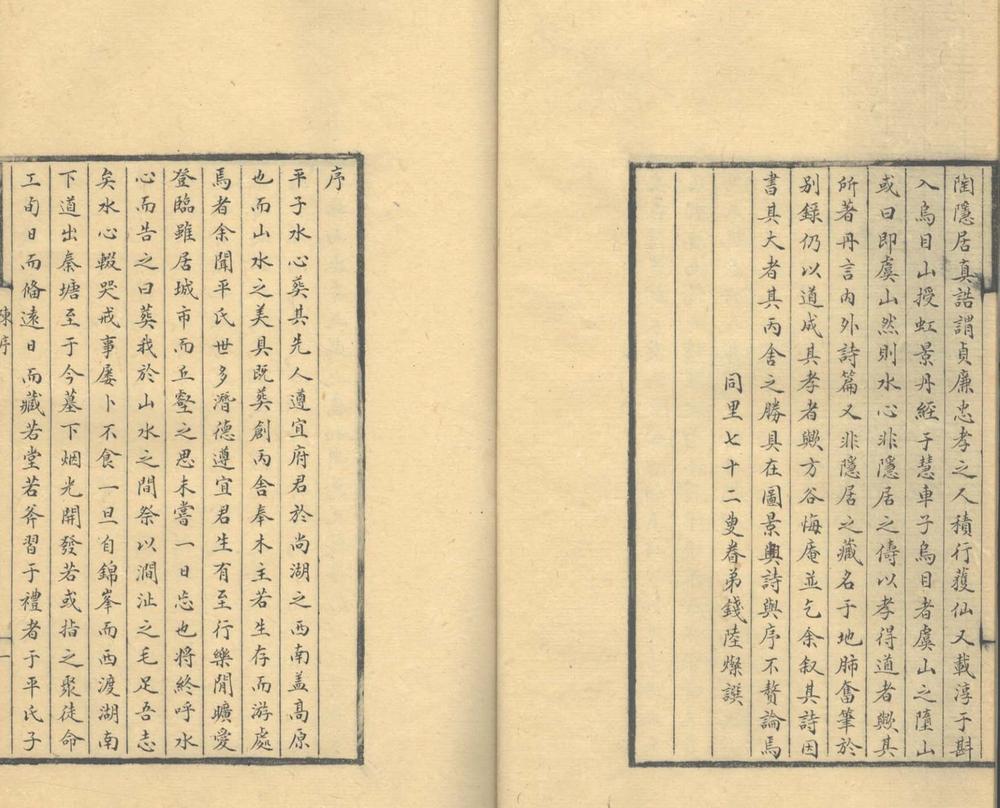 陶隱居真誥謂貞廉忠孝之人積行獲仙又載淳于斟
入烏目山授虹景丹經于慧車子烏目者虞山之隨山
或曰即虞山然則水心非隱居之儔以孝得道者歟其
所著丹言內外詩篇又非隱居之藏名于地肺奮筆於
別錄仍以道成其孝者歟方谷悔庵並乞余叙其詩因
書其大者其丙舍之勝具在圖景輿詩與序不贅論焉
同里七十二叟眷弟錢陸燦譔
序
平子水心葬其先人遵宜府君於尚湖之西南盖高原
也而山水之美具既葬創丙舍奉木主若生存而游處
焉者余聞平氏世多潛德遵宜君生有至行樂閒曠愛
登臨雖居城市而丘壑之思未嘗一日忘也將終呼水
心而告之曰葬我於山水之間祭以澗沚之毛足吾志
矣水心輟哭戒事屢卜不食一旦自錦峯而西渡湖南
下道出秦塘至于今墓下烟光開發若或指之聚徒命
工旬日而脩遠日而藏若堂若斧習于禮者于平氏子
陳序
一